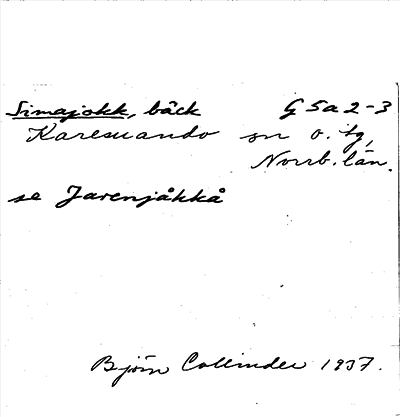 Simajokk, bäck G 5a 2-3
Karesuando sn o. tg,
Norrb. län.
se Jarenjåkkå
Björn Collinder 1937.